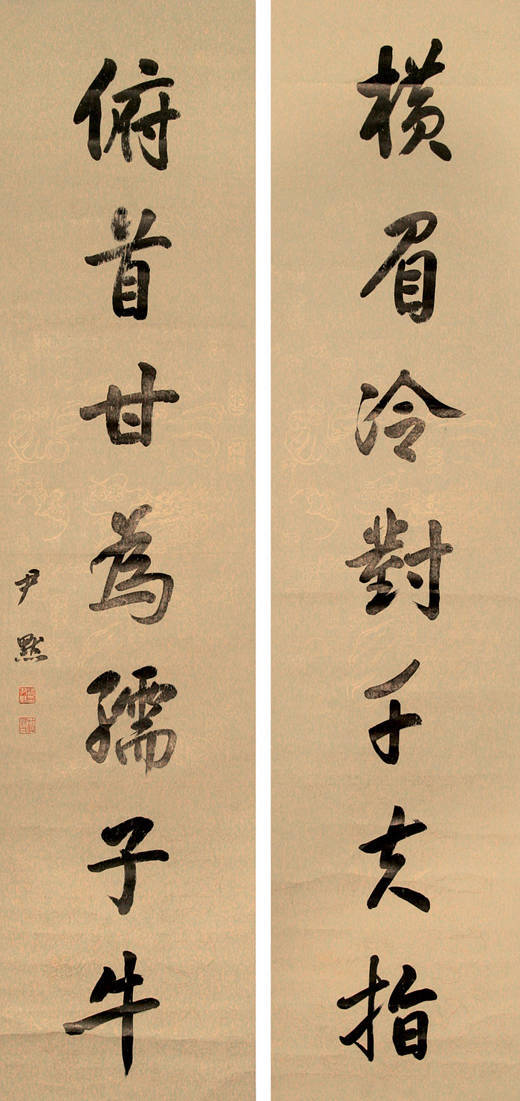 橫眉冷對千夫指
俯首甘為孺子牛
尹默